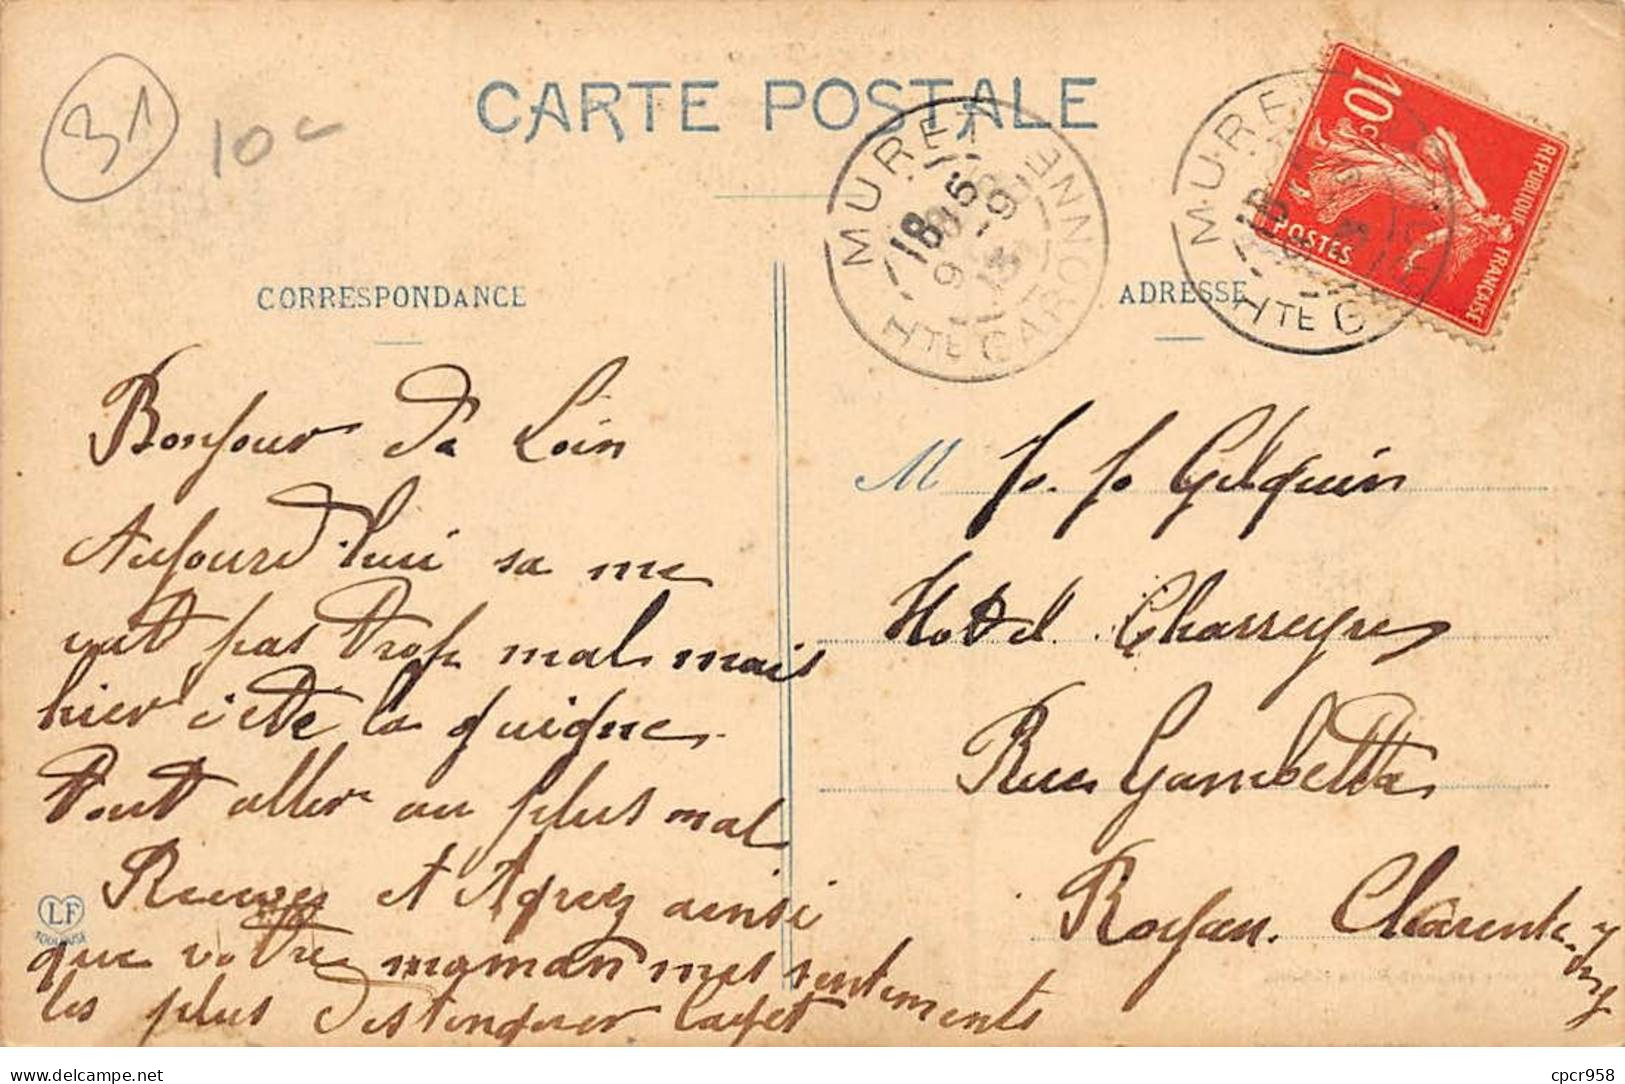 31
10c
CARTE POSTALE
MURET
18 15
9 - 9
13
HTE GARONNE
MURET
18
HTE G
10c
POSTES
REPUBLIQUE FRANÇAISE
CORRESPONDANCE
ADRESSE
Bonjour Da Loin
Aujourd'hui sa me
vat pas trop mal mais
hier c'eté la guigne
tout aller au plus mal
Recevez et Agreez ainsi
que votre maman mes sentements
les plus Destinguer
M J. J. Gelquin
Hotel Charreyre
Rue Gambetta
Royan. Charente
LF
TOULOUSE
delcampe.net
cpcr958